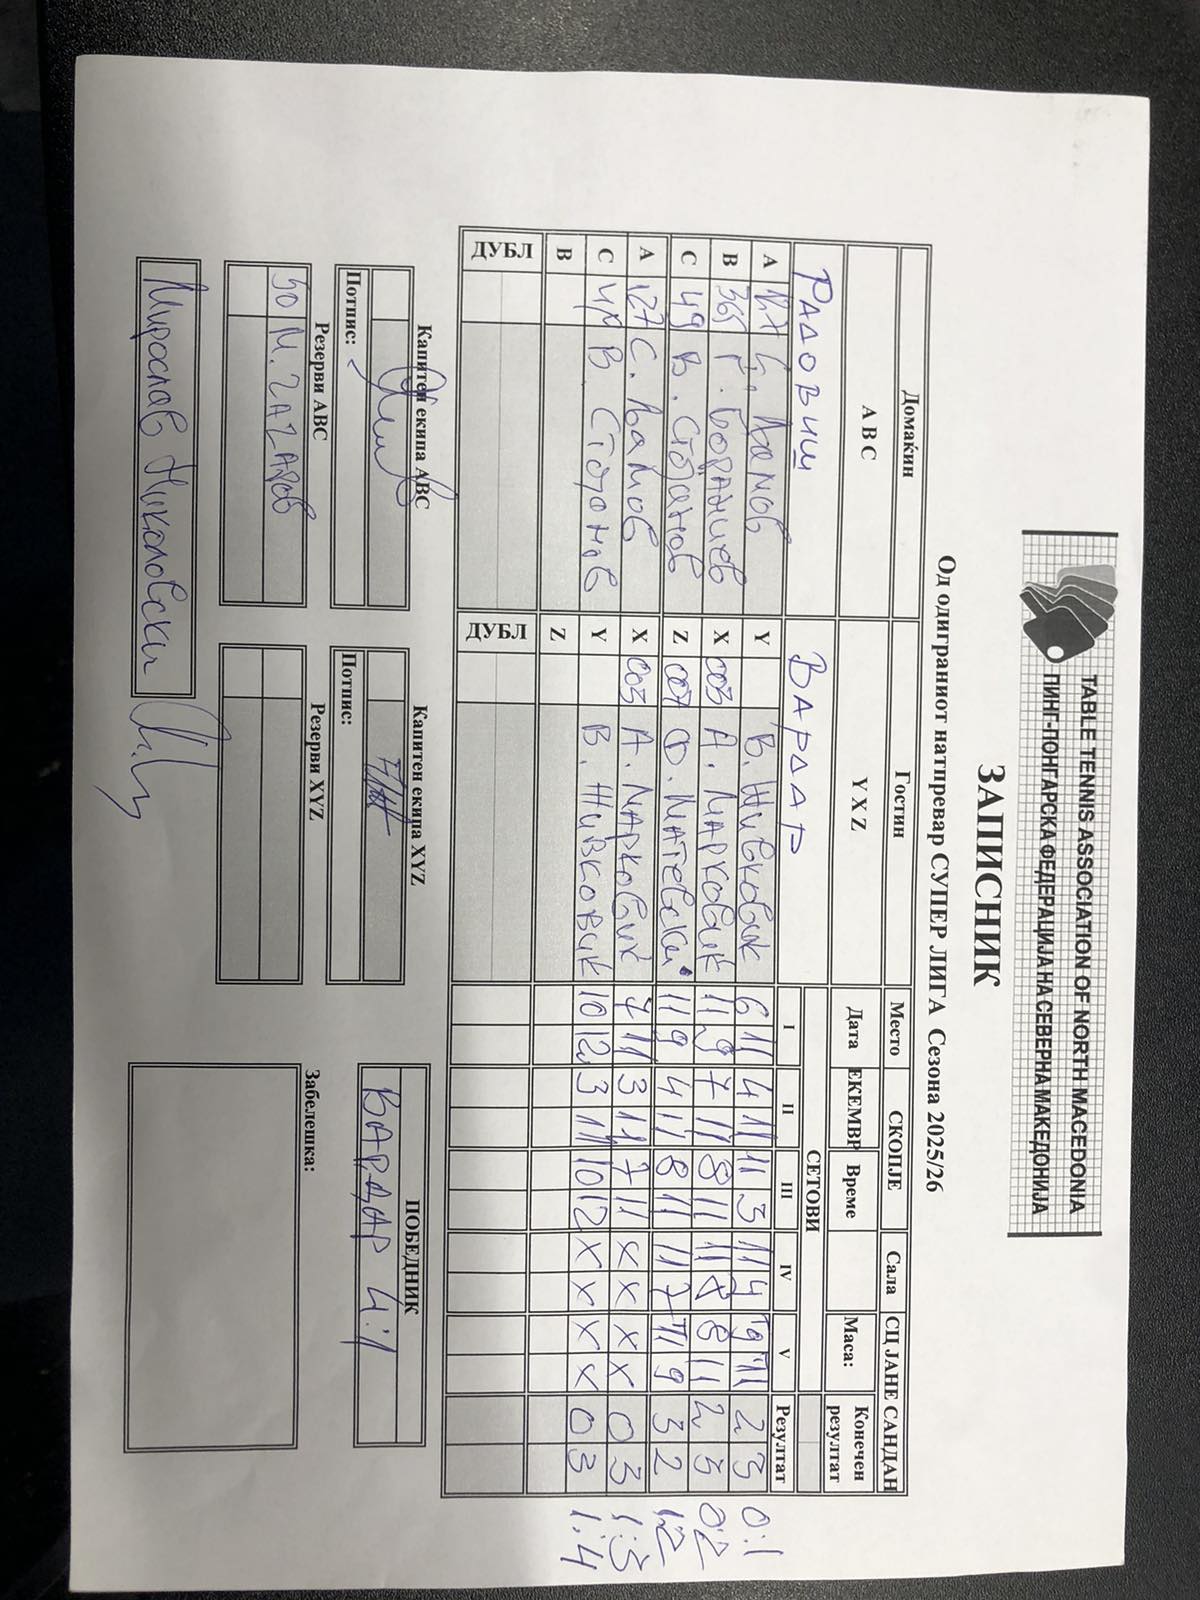 TABLE TENNIS ASSOCIATION OF NORTH MACEDONIA
ПИНГ-ПОНГАРСКА ФЕДЕРАЦИЈА НА СЕВЕРНА МАКЕДОНИЈА
ЗАПИСНИК
Од одиграниот натпревар СУПЕР ЛИГА Сезона 2025/26
Домаќин Гостин Место СКОПЈЕ Сала СЦ ЈАНЕ САНДАН
A B C Y X Z Дата ЕКЕМВР Време Маса: Конечен резултат
РАДОВИШ ВАРДАР СЕТОВИ
I II III IV V Резултат
A 127 С. Љамов Y В. Живковиќ 6 11 4 11 11 3 11 4 9 11 2 3 0:1
B 365 Г. Боранџиев X 003 А. Марковиќ 11 9 7 11 8 11 11 8 8 11 2 3 0:2
C 49 В. Стојанов Z 007 Ф. Матевски 11 9 4 11 8 11 11 7 11 9 3 2 1:2
A 127 С. Љамов X 003 А. Марковиќ 7 11 3 11 7 11 X X X X 0 3 1:3
C 49 В. Стојанов Y В. Живковиќ 10 12 3 11 10 12 X X X X 0 3 1:4
B Z
ДУБЛ ДУБЛ
Капитен екипа ABC Капитен екипа XYZ ПОБЕДНИК
ВАРДАР 4:1
Потпис: Потпис:
Резерви ABC Резерви XYZ Забелешка:
50 М. ГАГАРОВ
Мирослав Николовски